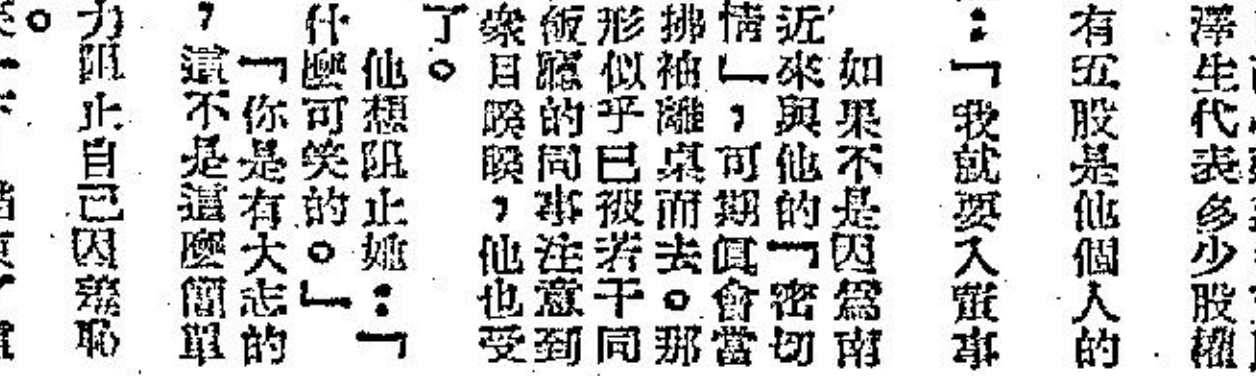 澤生代表多少股權
有五股是他個人的
：「我就要入董事
如果不是因爲南
近來與他的「密切
情」，可期眞會當
拂袖離桌而去。那
形似乎已被若干同
飯廳的同事注意到
衆目睽睽，他也受
了。
他想阻止她：「
什麼可笑的。」
「你是有大志的
，這不是這麼簡單
力阻止自己因羞恥
。